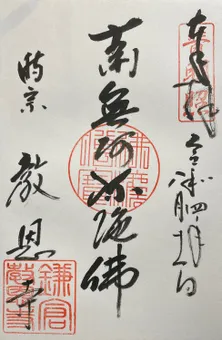 奉拝
令和四年 月 日
南無阿弥陀佛
時宗 教恩寺
鎌倉